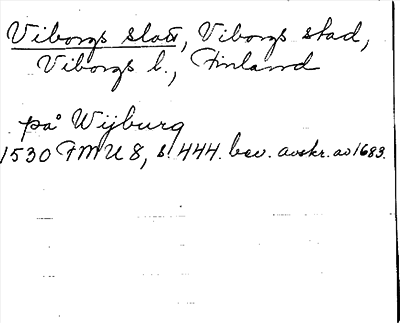 Viborgs slott, Viborgs stad,
Viborgs l., Finland
på Wijburg
1530 FMU 8, s. 444. bev. avskr. av 1683.